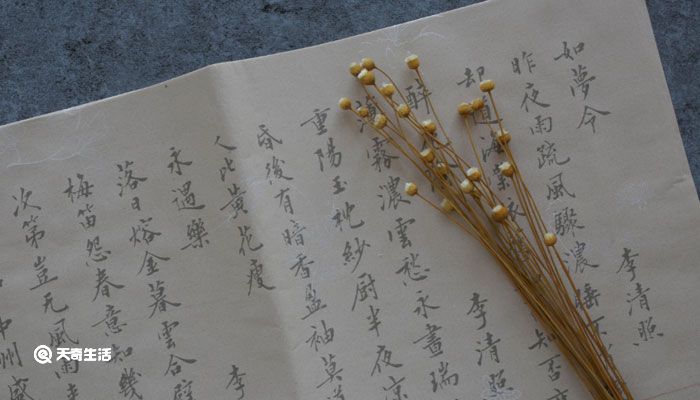 如夢令
李清照
昨夜雨疏風驟濃睡不
却道海棠依舊
知否應
醉花陰
李清照
薄霧濃雲愁永晝瑞
重陽玉枕紗厨半夜涼
昏後有暗香盈袖莫道
人比黃花瘦
永遇樂
李
落日熔金暮雲合璧
梅笛怨春意知幾
次第豈无風雨
中州盛
天奇生活